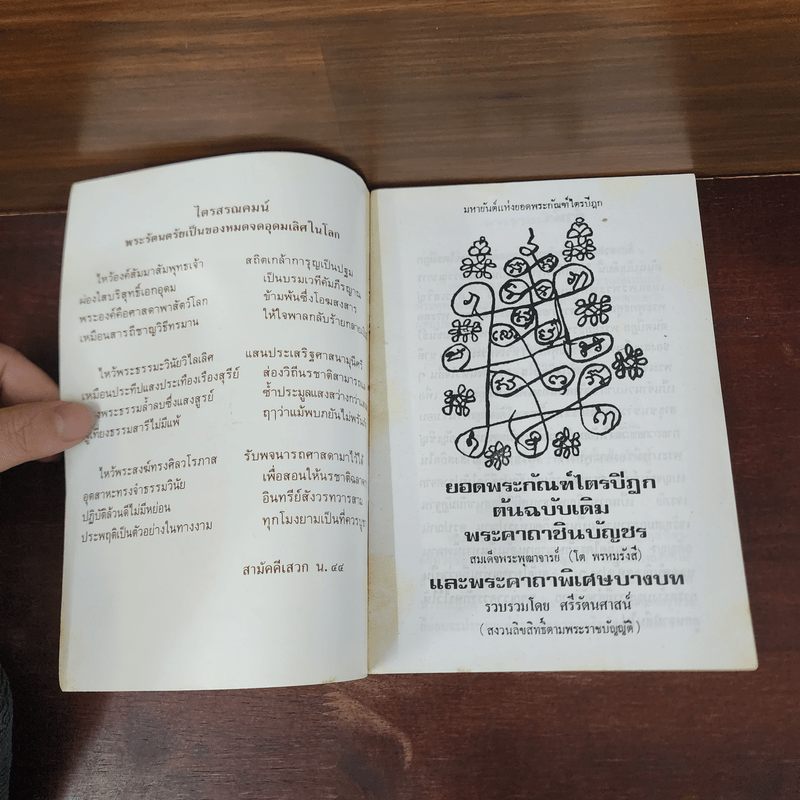 ไตรสรณคมน์
พระรัตนตรัยเป็นของหมดจดอุดมเลิศในโลก
ไหว้องค์สัมมาสัมพุทธเจ้า สถิตเกล้าการุญเป็นปฐม
ผ่องใสบริสุทธิ์เอกอุดม เป็นบรมเวทีคัมภีรญาณ
พระองค์คือศาสดาพาสัตว์โลก ข้ามพ้นซึ่งโอฆสงสาร
เหมือนสารถีชาญวิธีทรมาน ให้ใจพาลกลับร้าย
ไหว้พระธรรมะวินัยวิไลเลิศ แสนประเสริฐศาสนามุนีศรี
เหมือนประทีปแสงประเทืองเรืองสุรีย์ ส่องวิถีนรชาติสามารถ
พระธรรมล้ำลบซึ่งแสงสูรย์ ซ้ำประมูลแสงสว่างกว่า
เที่ยงธรรมสารีไม่มีแพ้ ฤๅว่าแม้พบภยันไม่พรั่น
ไหว้พระสงฆ์ทรงศีลวโรภาส รับพจนารถศาสดามาไว้ได้
อุตสาหะทรงจำธรรมวินัย เพื่อสอนให้นรชาติฉลาด
ปฏิบัติล้วนดีไม่มีหย่อน อินทรีย์สังวรทวารสาม
ประพฤติเป็นตัวอย่างในทางงาม ทุกโมงยามเป็นที่ควรบูชา
สามัคคีเสวก น. ๔๔
มหายันต์แห่งยอดพระกัณฑ์ไตรปิฎก
ยอดพระกัณฑ์ไตรปิฎก
ต้นฉบับเดิม
พระคาถาชินบัญชร
สมเด็จพระพุฒาจารย์ (โต พรหมรังสี)
และพระคาถาพิเศษบางบท
รวบรวมโดย ศรีรัตนศาสน์
(สงวนลิขสิทธิ์ตามพระราชบัญญัติ)